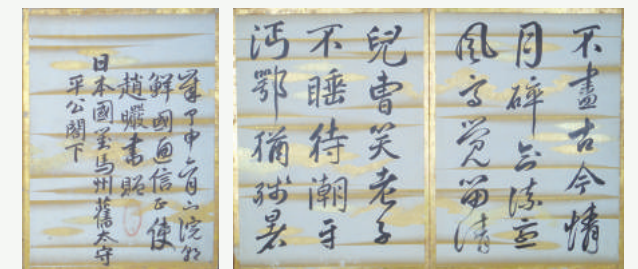 不盡古今情
月碎知流急
風高覺笛清
兒曹笑老子
不睡待潮平
沔鄂猶殘暑
歲甲申六月下浣朝
鮮國通信正使
趙曮書贈
日本國對馬州舊太守
平公閤下